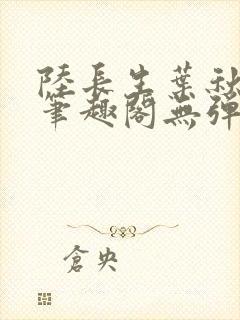 陸長生葉秋
筆趣閣無彈
倉央